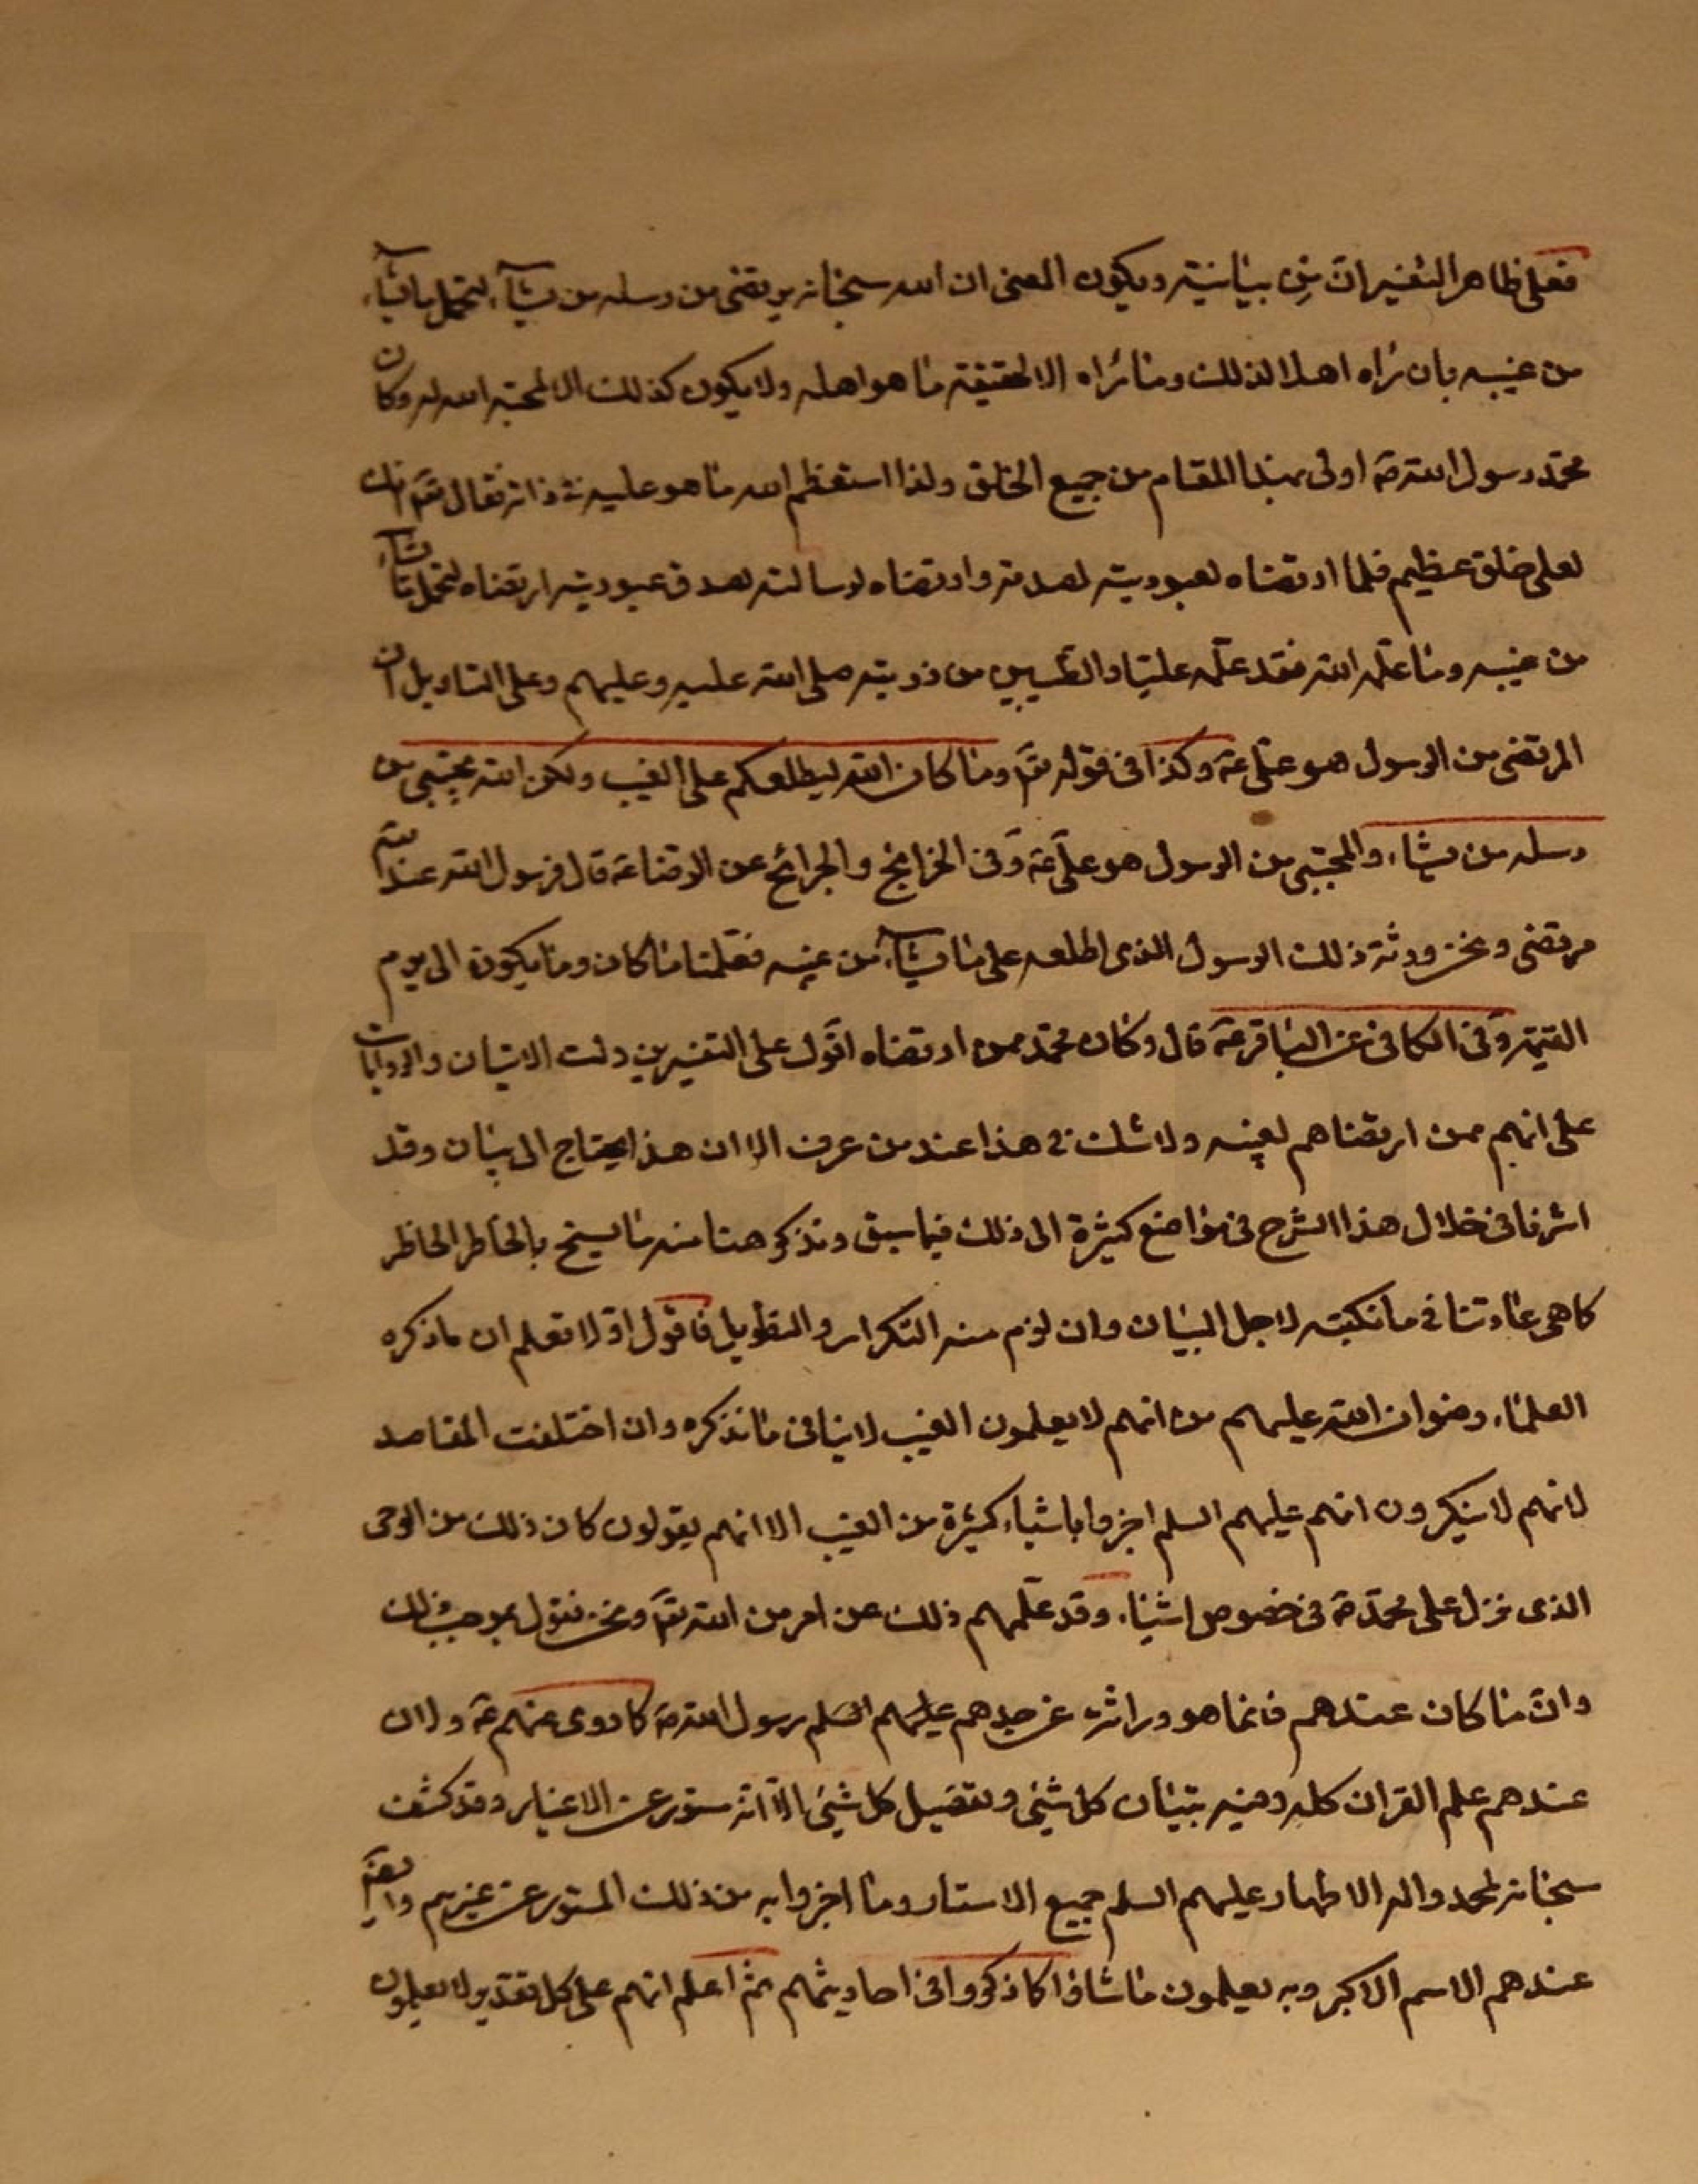 فعلى ظاهر التفسير ان من بيانية ويكون المعنى ان الله سبحانه يرتضى من رسله من يشآء لتحمل ما يشآء
من غيبه بان يراه اهلا لذلك وما يراه الا لحقيقة ما هو اهله ولا يكون كذلك الا لمحبة الله له وكان
محمد رسول الله صَ اولى بهذا المقام من جميع الخلق ولذا استعظم الله ما هو عليه فى ذاته فقال تعَ انك
لعلى خلق عظيم فلما ارتضاه لعبوديته لصدقه وارتضاه لرسالته لصدق عبوديته ارتضاه لتحمل ما شآء
من غيبه وما علّمه الله فقد علّمه عليّا والطيبين من ذريته صلى الله عليه وعليهم وعلى التاويل ان
المرتضى من الرسول هو علىّ عَ وكذا فى قوله تعَ وما كان الله ليطلعكم على الغيب ولكن الله يجتبى من
رسله من يشاء والمجتبى من الرسول هو علىّ عَ وفى الخرائج والجرائح عن الرضا عَ قال فرسول الله عند الله
مرتضى ونحن ورثة ذلك الرسول الذى اطلعه على ما يشآء من غيبه فعلّمنا ما كان وما يكون الى يوم
القيمة وفى الكافى عن الباقر عَ قال وكان محمّد ممن ارتضاه اقول على التفسيرين دلت الايتان والروايات
على انهم ممن ارتضاهم لغيبه ولا شك فى هذا عند من عرف الا ان هذا يحتاج الى بيان وقد
اشرنا فى خلال هذا الشرح فى مواضع كثيرة الى ذلك فيما سبق ونذكر هنا منه ما يسنح بالخاطر الخاطر
كما هى عادتنا فى ما نكتبه لاجل البيان وان لزم منه التكرار والتطويل فاقول اولا تعلم ان ما ذكره
العلماء رضوان الله عليهم من انهم لا يعلمون الغيب لا ينافى ما نذكره وان اختلفت المقاصد
لانهم لا ينكرون انهم عليهم السلم اخبروا باشياء كثيرة من الغيب الا انهم يقولون كان ذلك من الوحى
الذى نزل على محمّد صَ فى خصوص اشياء وقد علّمهم ذلك عن امر من الله تعَ ونحن نقول بموجب ذلك
وانّ ما كان عندهم فانما هو وراثة عن جدهم عليهم السلم رسول الله صَ كما روى عنهم عَ ولان
عندهم علم القران كله وفيه تبيان كل شئ وتفصيل كل شئ الا انّه مستور عن الاغيار وقد كشف
سبحانه لمحمد واله الاطهار عليهم السلم جميع الاستار وما اخبروا به من ذلك المستور عن غيرهم وايضا
عندهم الاسم الاكبر وبه يعلمون ما شاؤا كما ذكروا فى احاديثهم ثم اعلم انهم على كل تقدير لا يعلمون